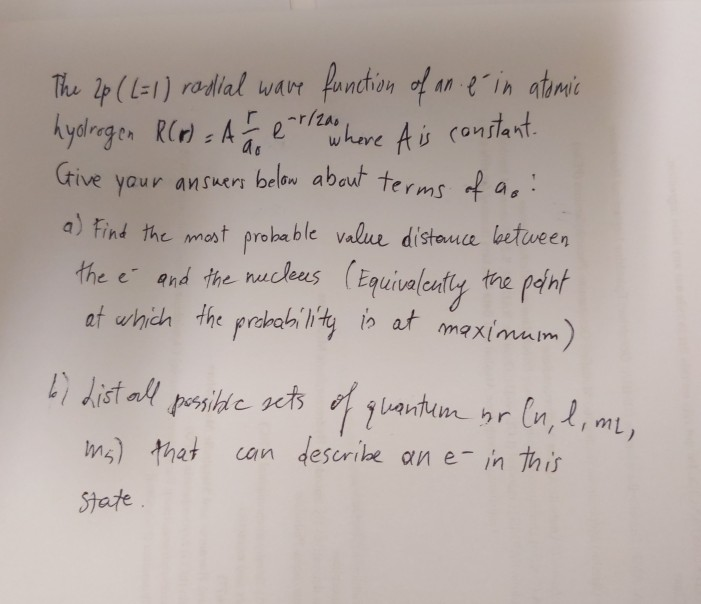 The 2p (L=1) radial wave function of an e⁻ in atomic
hydrogen R(r) = A r/a₀ e^(-r/2a₀) where A is constant.
Give your answers below about terms of a₀ :
a) Find the most probable value distance between
the e⁻ and the nucleus (Equivalently the point
at which the probability is at maximum)
b) List all possible sets of quantum nr (n, l, mL,
ms) that can describe an e⁻ in this
state.